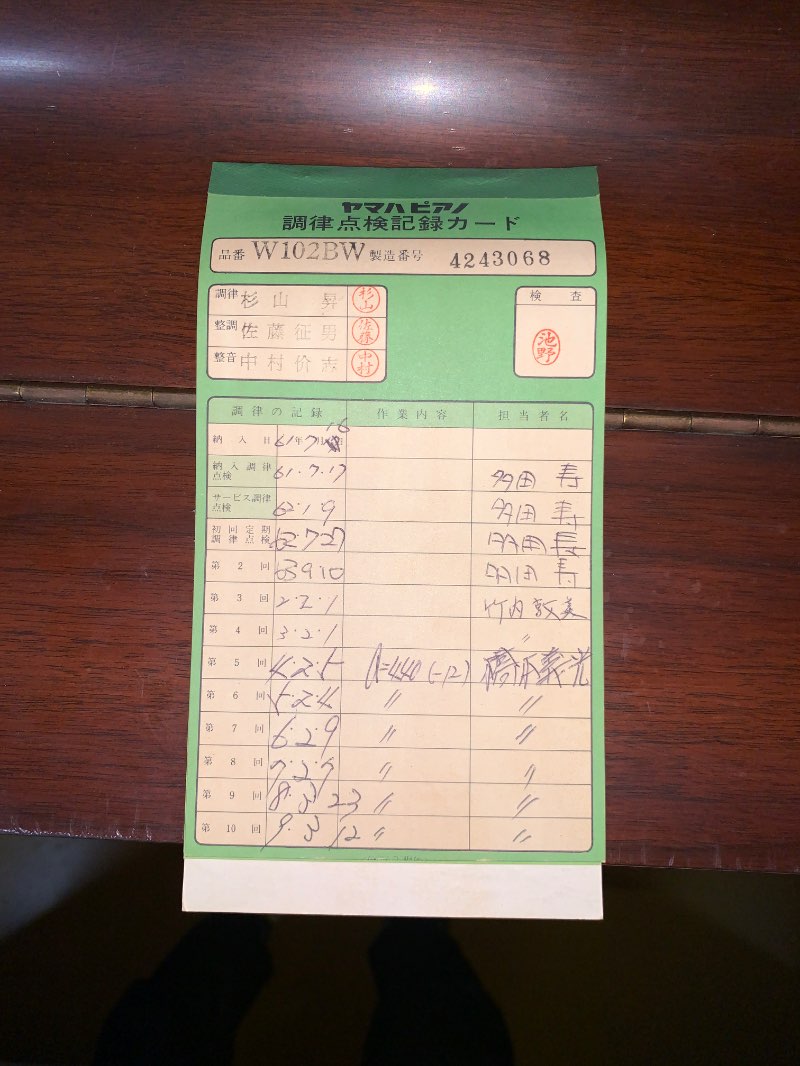 ヤマハピアノ
調律点検記録カード
品番 W102BW 製造番号 4243068
調律 杉山 昇 杉山
整調 佐藤征男 佐藤
整音 中村价志 中村
検査
池野
調律の記録 作業内容 担当者名
納入日 61年7月16
納入調律点検 61.7.17 多田 寿
サービス調律点検 62.1.9 多田 寿
初回定期調律点検 62.7.27 多田 寿
第2回 63.9.10 多田 寿
第3回 2.2.1 竹内敦美
第4回 3.2.1 〃
第5回 4.2.5 A=440(-12) 義光
第6回 5.2.4 〃 〃
第7回 6.2.9 〃 〃
第8回 7.2.7 〃 〃
第9回 8.3 23 〃 〃
第10回 9.3 12 〃 〃